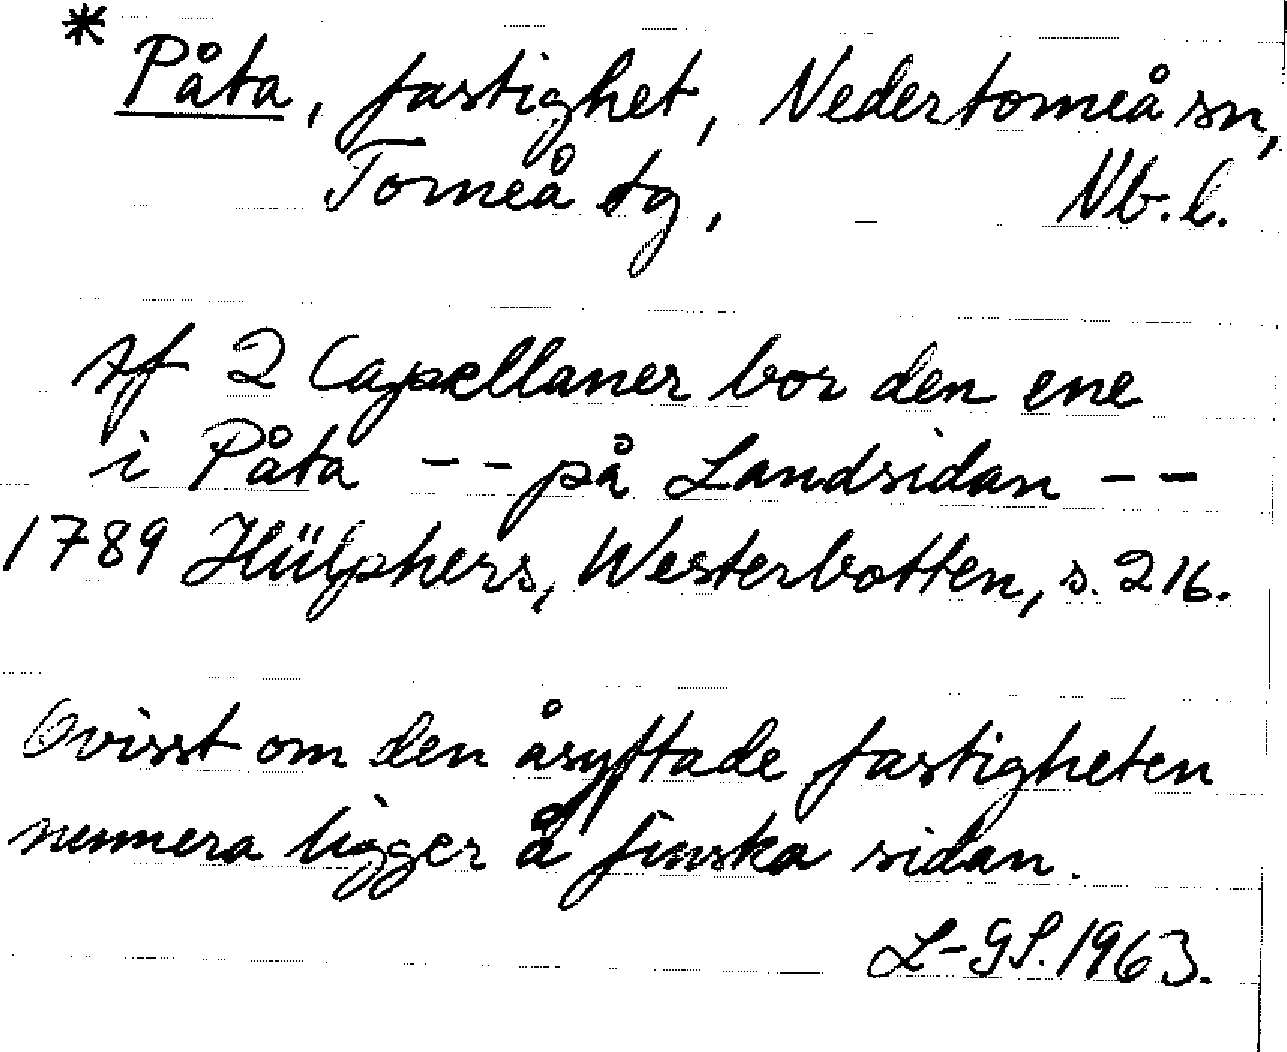 * Påta, fastighet, Nedertorneå sn,
Torneå tg, Nb.l.
Af 2 Capellaner bor den ene
i Påta -- på Landsidan --
1789 Hülphers, Westerbotten, s. 216.
Ovisst om den åsyftade fastigheten
numera ligger å finska sidan.
L-GS. 1963.